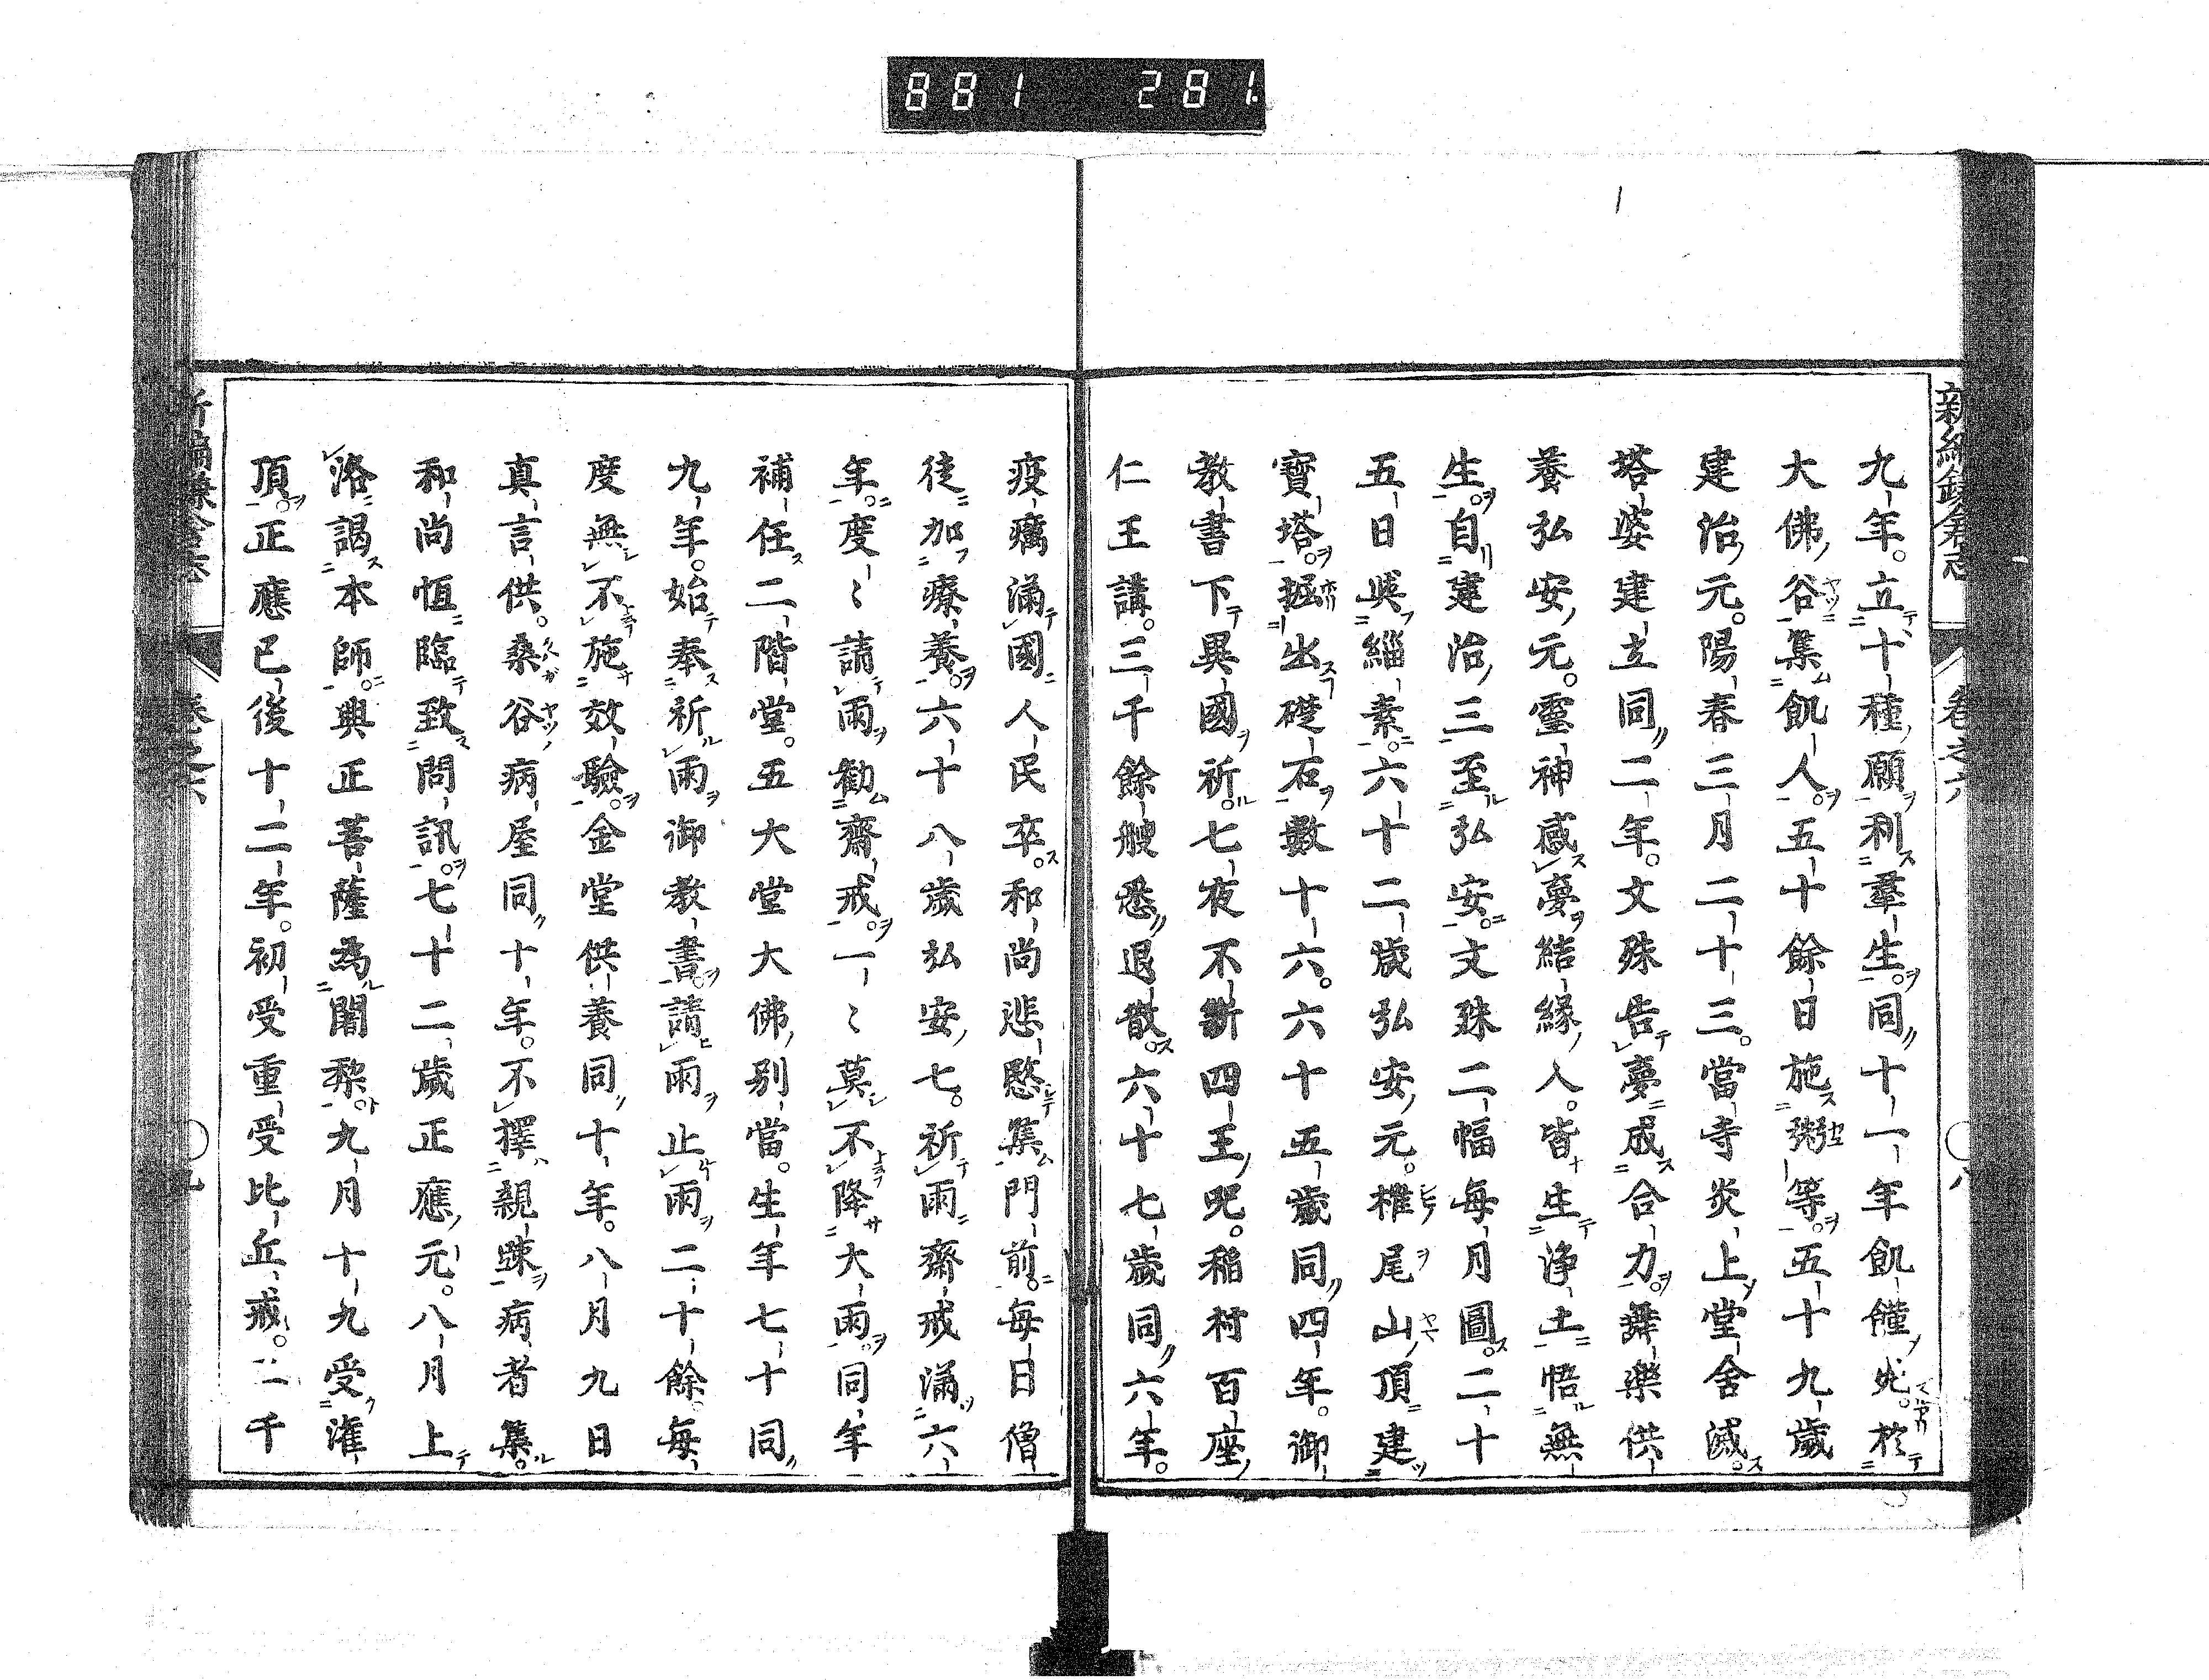 881 281.
新編鎌倉志 卷之六 〇八
九年。立十種願利羣生。同十一年飢饉死。於
大佛谷集飢人。五十餘日施粥等。五十九歲
建治元。陽春三月二十三。當寺炎上堂舍滅。
塔婆建立同二年。文殊告夢成合力。舞樂供
養弘安元。靈神感夢結緣人。皆生淨土悟無
生。自建治三至弘安。文殊二幅每月圖。二十
五日與緇素。六十二歲弘安元。椎尾山頂建
寶塔。掘出礎石數十六。六十五歲同四年。御
教書下異國祈。七夜不斷四王呪。稻村百座
仁王講。三千餘艘悉退散。六十七歲同六年。
疫癘滿國人民卒。和尚悲愍集門前。每日僧
徒加療養。六十八歲弘安七。祈雨齋戒滿六
年。度〻請雨勸齋戒。一〻莫不降大雨。同年
補任二階堂。五大堂大佛別當。生年七十同
九年。始奉祈雨御教書。請雨止雨二十餘。每
度無不施效驗。金堂供養同十年。八月九日
真言供。桑谷病屋同十年。不擇親疎病者集。
和尚恆臨致問訊。七十二歲正應元。八月上
洛謁本師。興正菩薩為闍黎。九月十九受灌
頂。正應已後十二年。初受重受比丘戒。二千
新編鎌倉志 卷之六 〇九